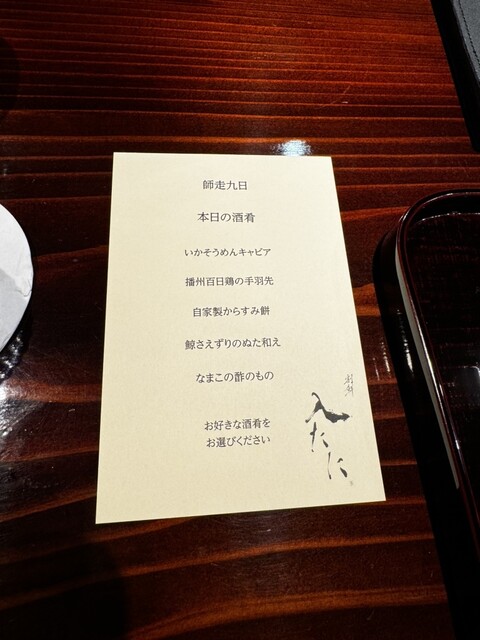 師走九日
本日の酒肴
いかそうめんキャビア
播州百日鶏の手羽先
自家製からすみ餅
鯨さえずりのぬた和え
なまこの酢のもの
お好きな酒肴を
お選びください
入たに